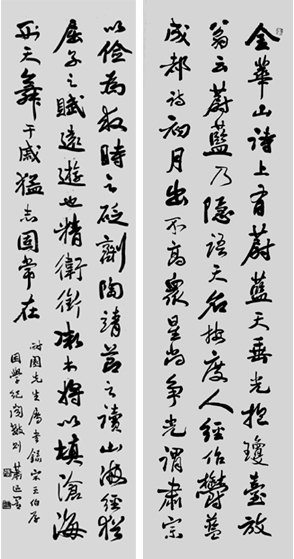 金華山詩上有蔚藍天垂光抱瓊臺放
翁云蔚藍乃隱語天名按度人經作鬱藍
成都詩初月出不高衆星尚爭光謂肅宗
以儉為救時之砭劑陶靖節之讀山海經猶
屈子之賦遠遊也精衛銜微木將以填滄海
形天舞干戚猛志固常在
先生屬書錄宋王伯厚
困學紀聞數則 蕭退